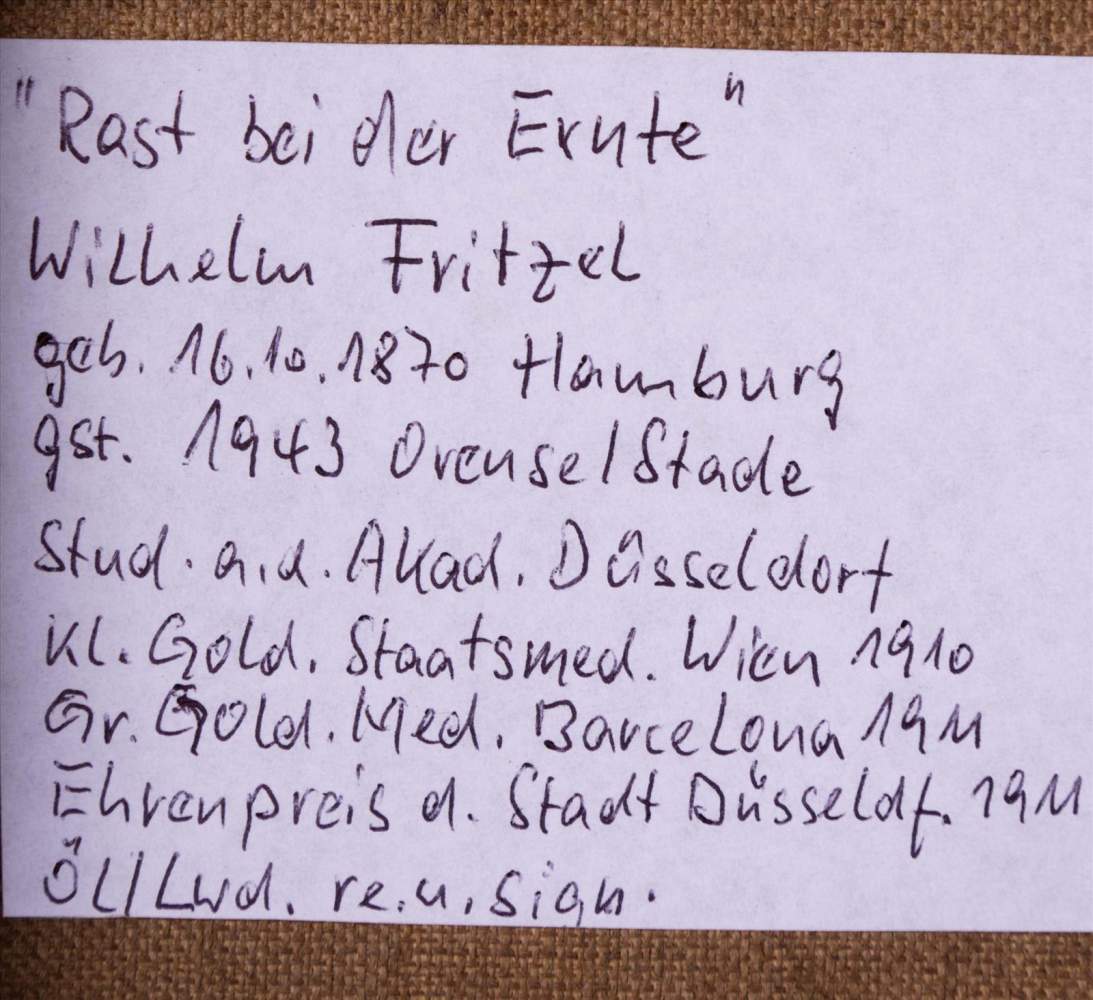 "Rast bei der Ernte"
Wilhelm Fritzel
geb. 16.10.1870 Hamburg
gst. 1943 Orense/Stade
Stud. a.d. Akad. Düsseldorf
Kl. Gold. Staatsmed. Wien 1910
Gr. Gold. Med. Barcelona 1911
Ehrenpreis d. Stadt Düsseldf. 1911
Öl/Lwd. re.u. sign.